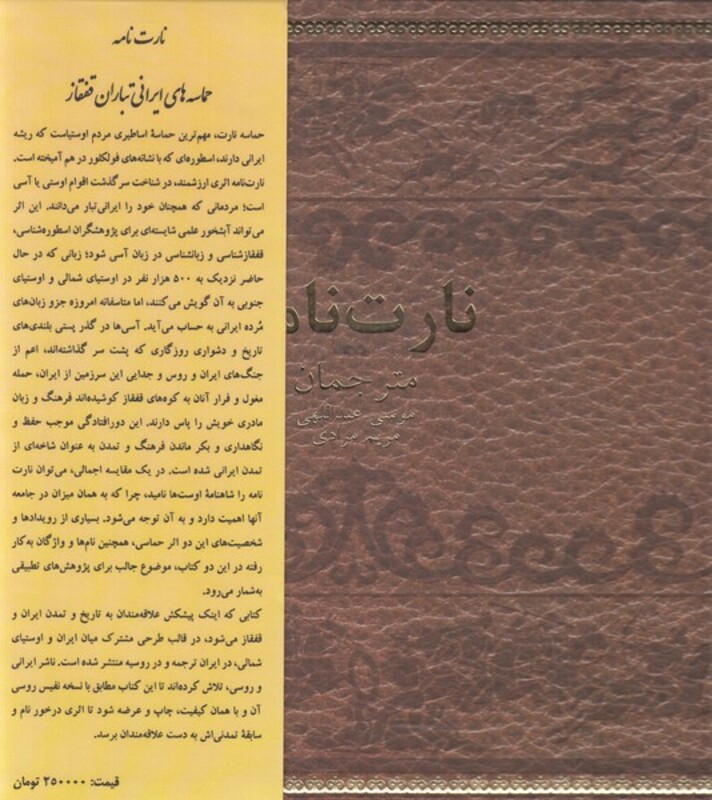 نارت نامه
حماسه های ایرانی تباران قفقاز
حماسه نارت، مهم‌ترین حماسهٔ اساطیری مردم اوستیاست که ریشه
ایرانی دارند، اسطوره‌ای که با نشانه‌های فولکلور در هم آمیخته است.
نارت‌نامه اثری ارزشمند، در شناخت سرگذشت اقوام اوستی یا آسی
است؛ مردمانی که همچنان خود را ایرانی‌تبار می‌دانند. این اثر
می‌تواند آبشخور علمی شایسته‌ای برای پژوهشگران اسطوره‌شناسی،
قفقازشناسی و زبانشناسی در زبان آسی شود؛ زبانی که در حال
حاضر نزدیک به ۵۰۰ هزار نفر در اوستیای شمالی و اوستیای
جنوبی به آن گویش می‌کنند، اما متاسفانه امروزه جزو زبان‌های
مُرده ایرانی به حساب می‌آید. آسی‌ها در گذر پستی بلندی‌های
تاریخ و دشواری روزگاری که پشت سر گذاشته‌اند، اعم از
جنگ‌های ایران و روس و جدایی این سرزمین از ایران، حمله
مغول و فرار آنان به کوه‌های قفقاز کوشیده‌اند فرهنگ و زبان
مادری خویش را پاس دارند. این دورافتادگی موجب حفظ و
نگاهداری و بکر ماندن فرهنگ و تمدن به عنوان شاخه‌ای از
تمدن ایرانی شده است. در یک مقایسه اجمالی، می‌توان نارت
نامه را شاهنامهٔ اوست‌ها نامید، چرا که به همان میزان در جامعه
آنها اهمیت دارد و به آن توجه می‌شود. بسیاری از رویدادها و
شخصیت‌های این دو اثر حماسی، همچنین نام‌ها و واژگان به‌کار
رفته در این دو کتاب، موضوع جالب برای پژوهش‌های تطبیقی
به‌شمار می‌رود.
کتابی که اینک پیشکش علاقه‌مندان به تاریخ و تمدن ایران و
قفقاز می‌شود، در قالب طرحی مشترک میان ایران و اوستیای
شمالی، در ایران ترجمه و در روسیه منتشر شده است. ناشر ایرانی
و روسی، تلاش کرده‌اند تا این کتاب مطابق با نسخه نفیس روسی
آن و با همان کیفیت، چاپ و عرضه شود تا اثری درخور نام و
سابقهٔ تمدنی‌اش به دست علاقه‌مندان برسد.
قیمت: ۲۵۰۰۰۰ تومان
نارت‌نام
مترجمان
موسی عبداللهی
مریم مرادی